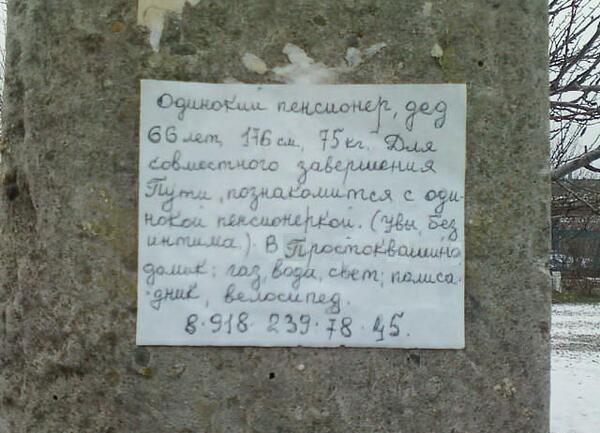 Одинокий пенсионер, дед
66 лет, 176 см, 75 кг. Для
совместного завершения
Пути, познакомится с оди-
нокой пенсионеркой. (Увы, без
интима). В Простоквашино
домик: газ, вода, свет; палиса-
дник, велосипед.
8·918·239·78·45.